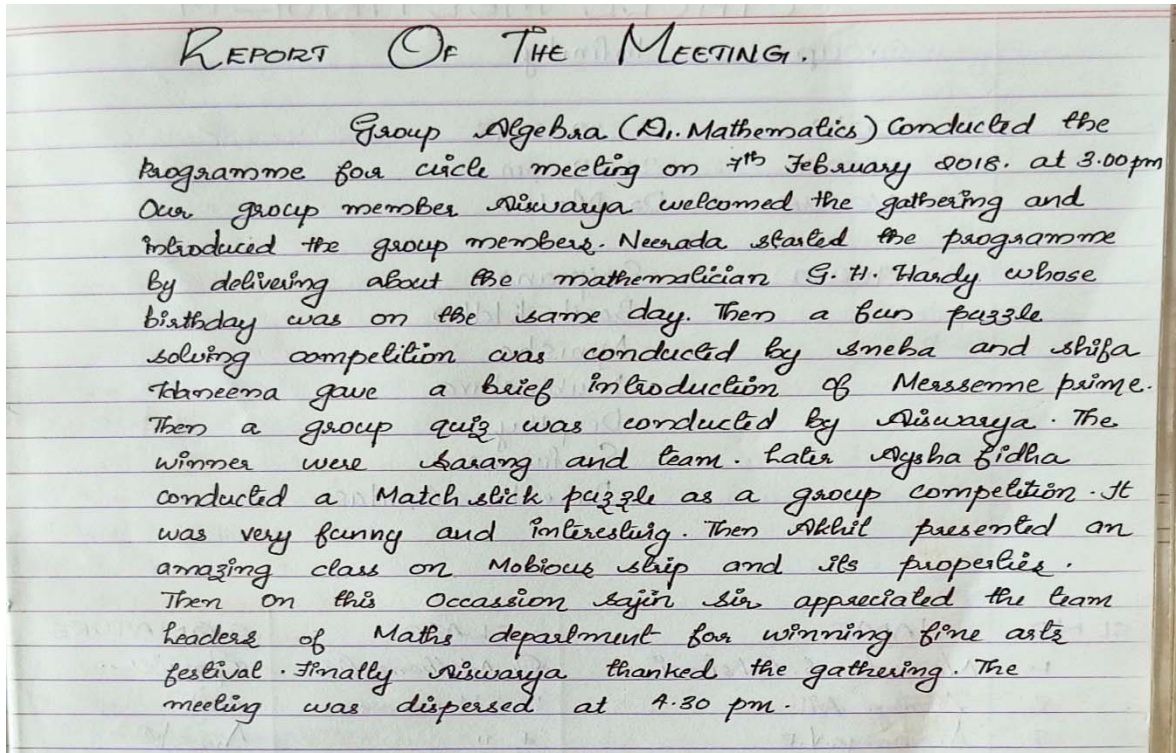 REPORT OF THE MEETING.
Group Algebra (D1. Mathematics) Conducted the
Programme for circle meeting on 7th February 2018. at 3.00pm
Our group member Aiswarya welcomed the gathering and
introduced the group members. Neerada started the programme
by delivering about the mathematician G. H. Hardy whose
birthday was on the same day. Then a fun puzzle
solving competition was conducted by Sneha and Shifa
Haneena gave a brief introduction of Merssenne prime.
Then a group quiz was conducted by Aiswarya. The
winner were Sarang and team. Later Aysha fidha
conducted a Match stick puzzle as a group competition. It
was very funny and interesting. Then Akhil presented an
amazing class on Mobious strip and its properties.
Then on this Occassion Sajin sir appreciated the team
headers of Maths department for winning fine arts
festival. Finally Aiswarya thanked the gathering. The
meeting was dispersed at 4.30 pm.